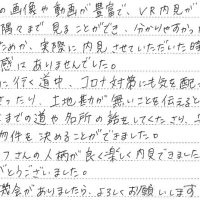 の画像や動画が豊富で、VR内見が
隅々まで見ることができ、分かりやすかっ
ためか、実際に内見させていただいた時
感はありませんでした。
に行く道中、コロナ対策にも気を配っ
さったり、土地勘が無いことを伝えると
までの道や名所の話をしてくださり、
物件を決めることができました。
フさんの人柄が良く楽しく内見できました
がとうございました。
機会がありましたら、よろしくお願いします